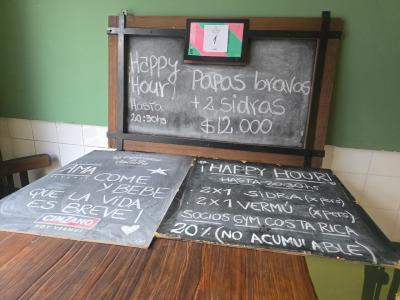 1
Happy
Hour!
Hasta
20:30hs
Papas bravas
+ 2 sidras
$12.000
AMA COME
Y BEBE
QUE LA VIDA
ES BREVE!
CINZANO
¡HAPPY HOUR!
HASTA 20:30hs
• 2x1 SIDRA (x pers)
• 2x1 VERMÚ (x pers)
SOCIOS GYM COSTA RICA
20% (NO ACUMULABLE)